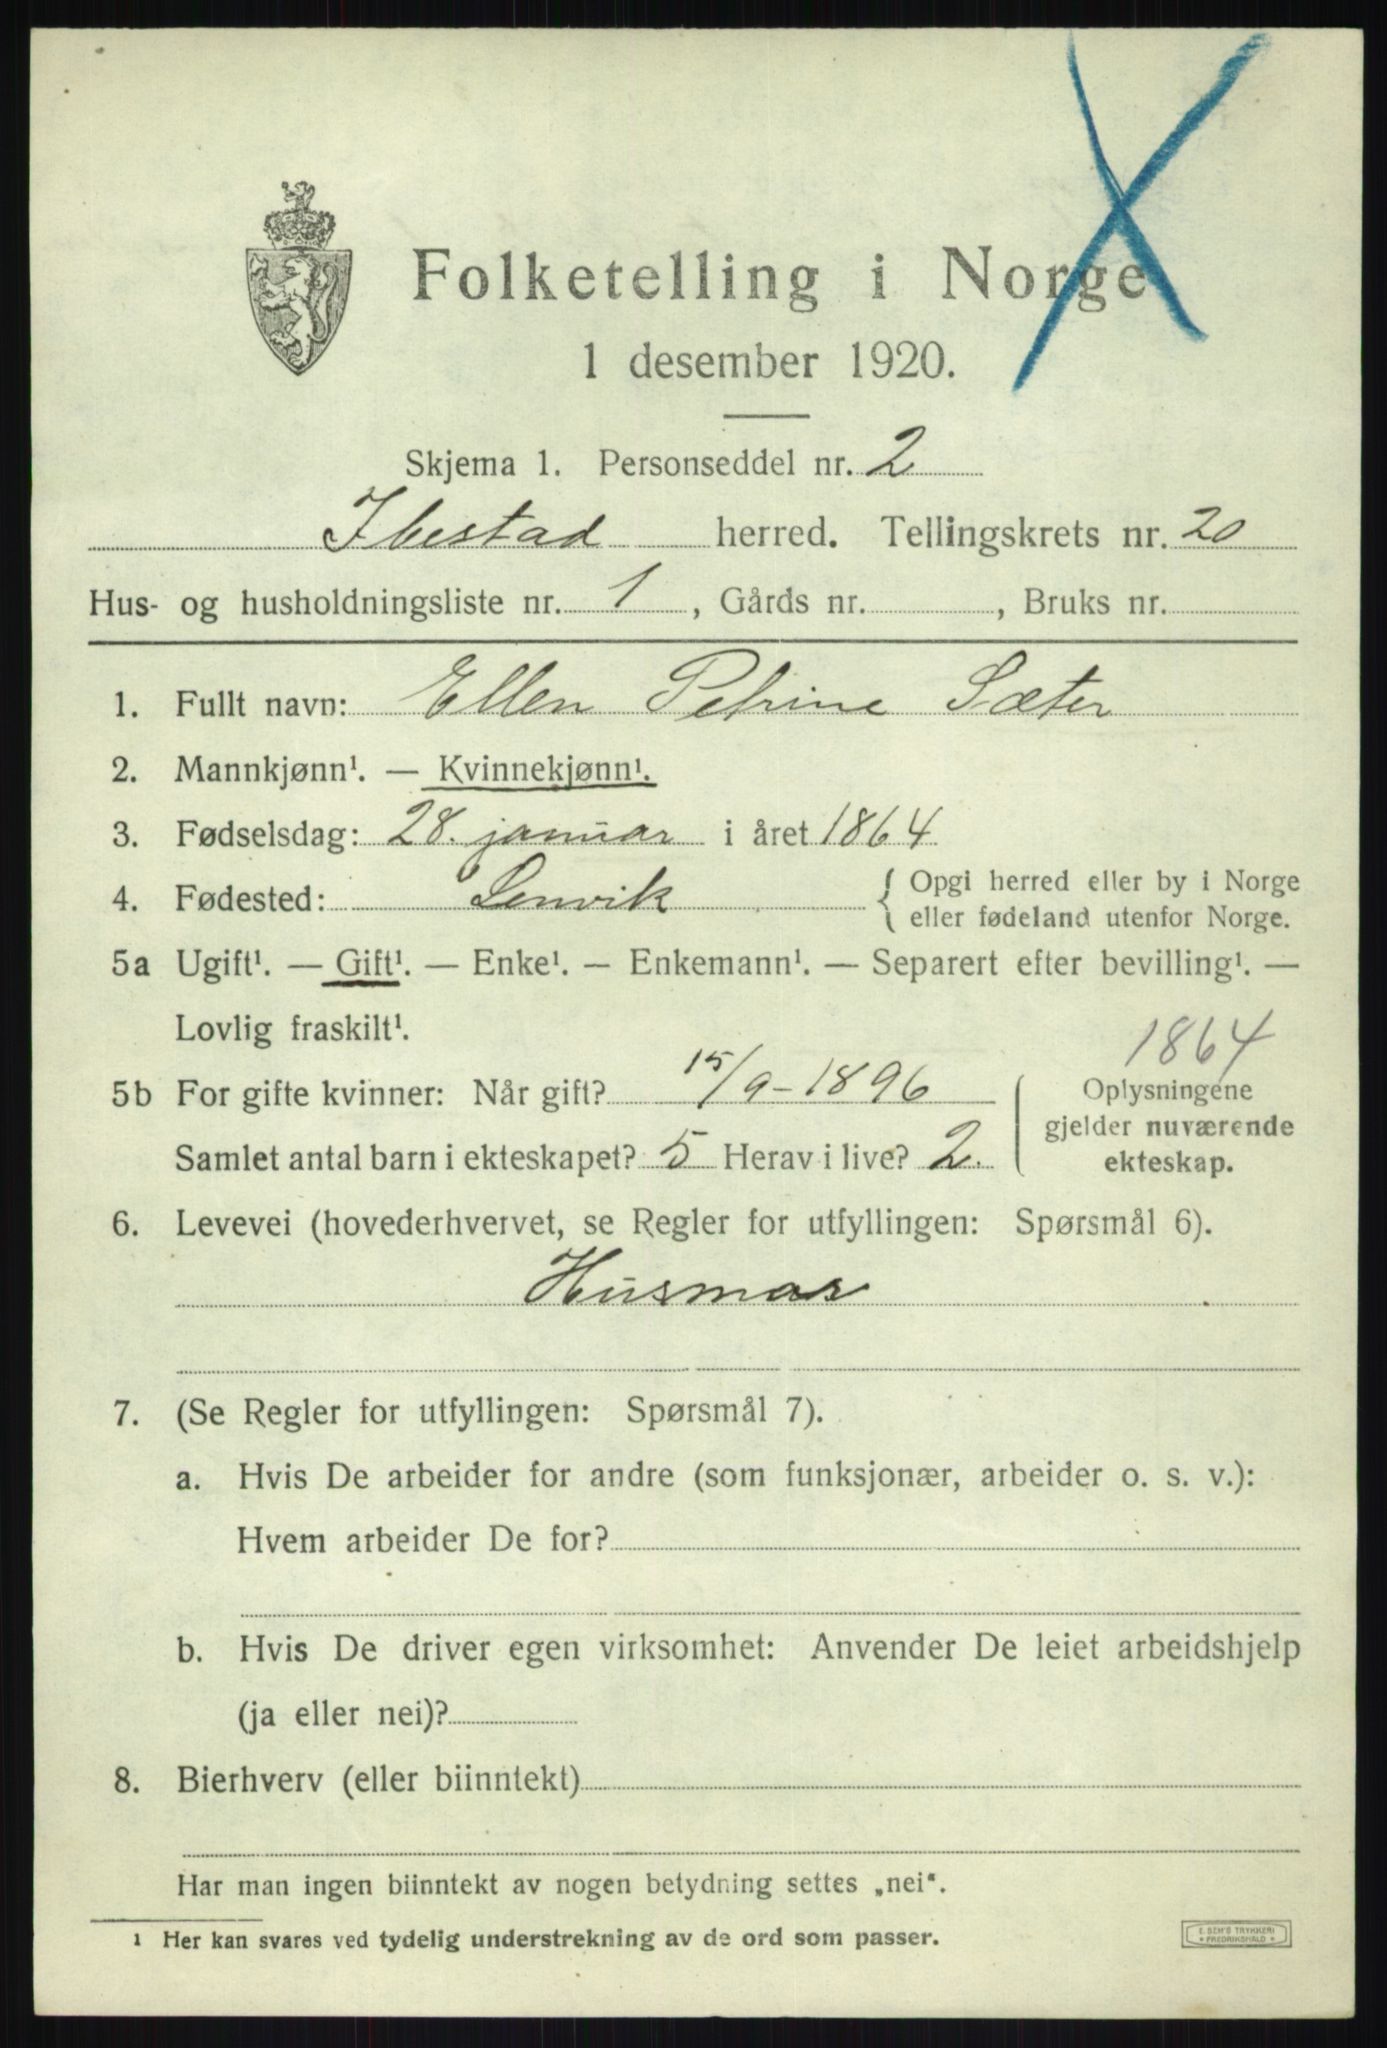 Folketelling i Norge
1 desember 1920.
Skjema 1. Personseddel nr. 2
Ibestad herred. Tellingskrets nr. 20
Hus- og husholdningsliste nr. 1, Gårds nr. , Bruks nr.
1. Fullt navn: Ellen Petrine Sæter
2. Mannkjønn¹. — Kvinnekjønn¹.
3. Fødselsdag: 28. januar i året 1864
4. Fødested: Lenvik { Opgi herred eller by i Norge
eller fødeland utenfor Norge.
5a Ugift¹. — Gift¹. — Enke¹. — Enkemann¹. — Separert efter bevilling¹. —
Lovlig fraskilt¹.
1864
5b For gifte kvinner: Når gift? 15/9-1896
Samlet antal barn i ekteskapet? 5 Herav i live? 2.
Oplysningene
gjelder nuværende
ekteskap.
6. Levevei (hovederhvervet, se Regler for utfyllingen: Spørsmål 6).
Husmor
7. (Se Regler for utfyllingen: Spørsmål 7).
a. Hvis De arbeider for andre (som funksjonær, arbeider o. s. v.):
Hvem arbeider De for?
b. Hvis De driver egen virksomhet: Anvender De leiet arbeidshjelp
(ja eller nei)?
8. Bierhverv (eller biinntekt)
Har man ingen biinntekt av nogen betydning settes „nei“.
¹ Her kan svares ved tydelig understrekning av de ord som passer.
E. SEM'S TRYKKERI
* FREDRIKSHALD *